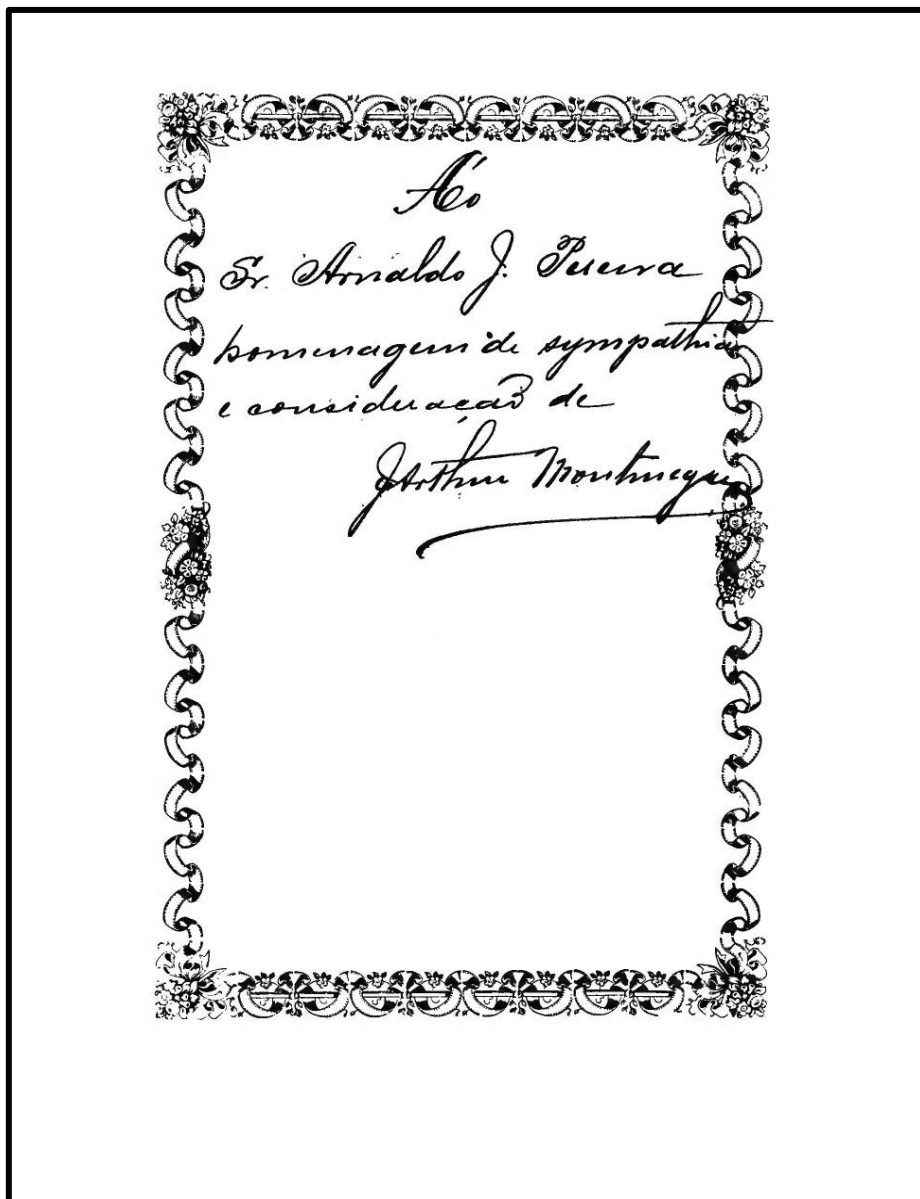 Ao
Sr. Arnaldo J. Pereira
homenagem de sympathia
e consideração de
JArthur Montenegro